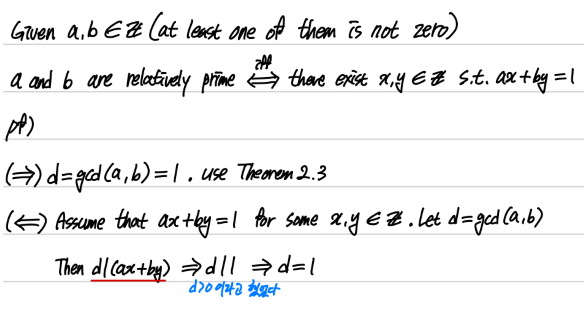 Given a,b ∈ ℤ (at least one of them is not zero)
a and b are relatively prime ⟺ there exist x,y ∈ ℤ s.t. ax+by=1
iff
pf)
(⇒) d=gcd(a,b)=1. use Theorem 2.3
(⇐) Assume that ax+by=1 for some x,y ∈ ℤ. Let d=gcd(a,b)
Then d|(ax+by) ⇒ d|1 ⇒ d=1
d>0 이라고 했었다